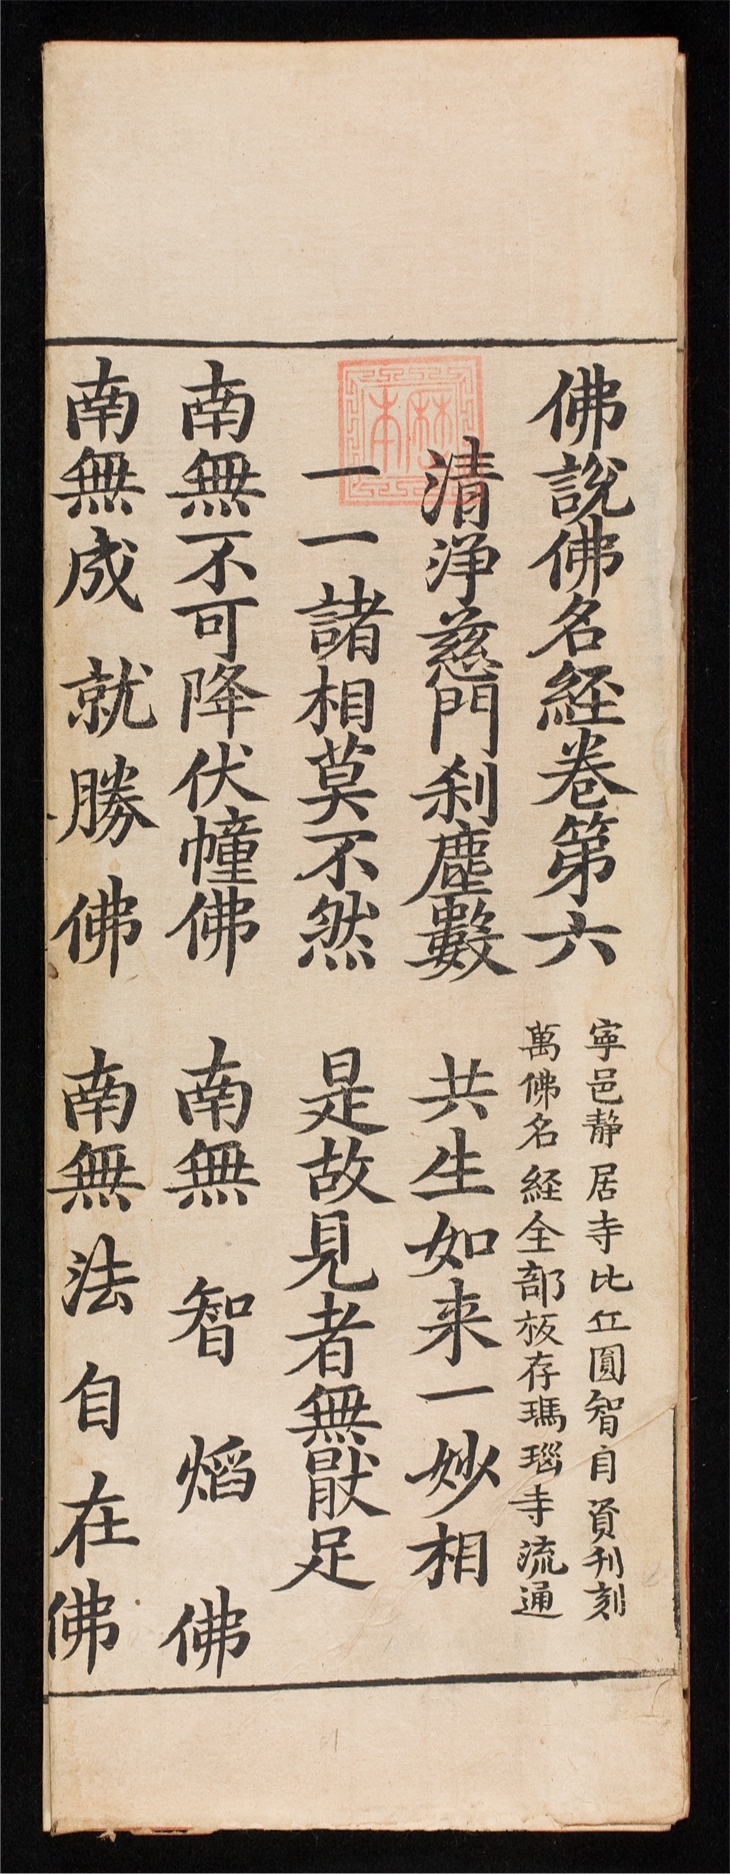 佛說佛名経卷第六
寕邑静居寺比丘圓智自資刊刻
萬佛名経全部板存瑪瑙寺流通
清淨慈門刹塵數 共生如来一妙相
一一諸相莫不然 是故見者無猒足
南無不可降伏幢佛 南無智熖佛
南無成就勝佛 南無法自在佛